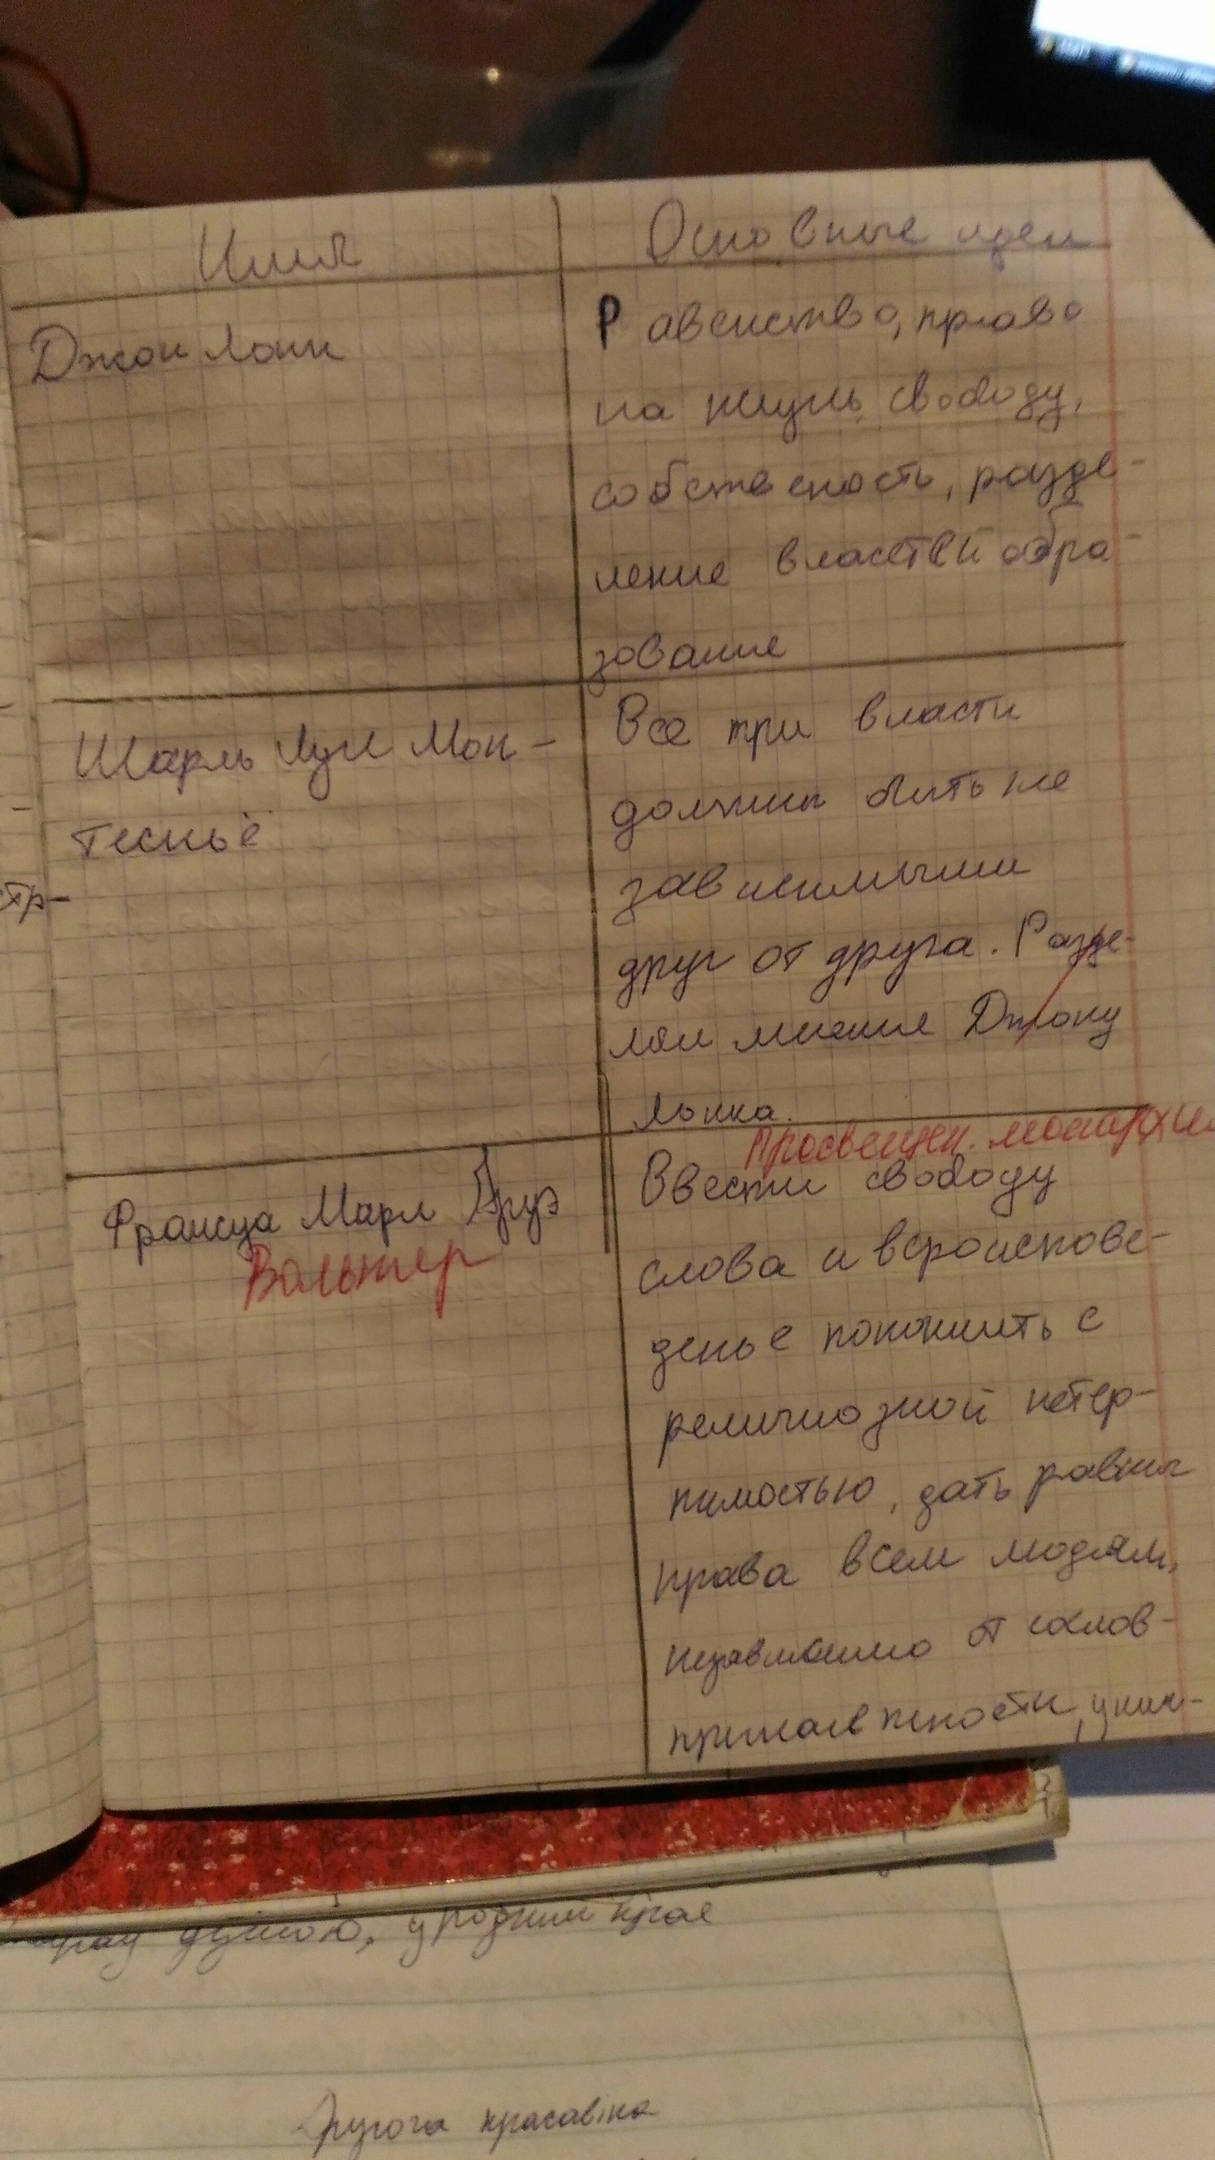 Имя
Основные идеи
Джон Локк
Равенство, право
на жизнь, свободу,
собственость, разде-
ление властей обра-
зование
Шарль Луи Мон-
тескьё
Все три власти
должны быть не
зависимыми
друг от друга. Разде-
лял мнение Джону
Локка.
Франсуа Мари Аруэ
Вольтер
Просвещен. монархия
Ввести свободу
слова и вероиспове-
денье покончить с
религиозной нетер-
пимостью, дать равны
права всем людям,
независимо от
тр-
душою, у родним крає
Другога красавіка